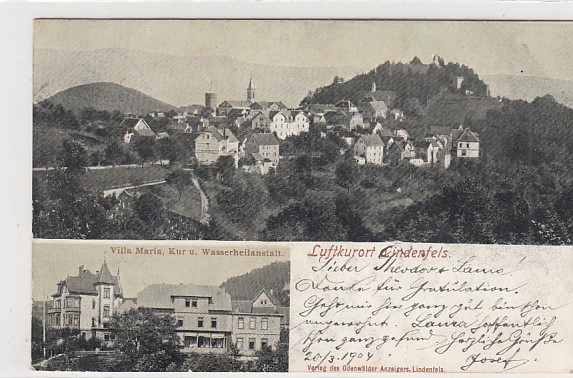 Villa Maria, Kur u. Wasserheilanstalt.
Luftkurort Lindenfels.
Lieber Theodor & Laura
Danke für Gratulation.
Habt mir ganz gut
Laura hoffentlich
ganz gesund Herzliche Grüße
20/3. 1904 Josef.
Verlag des Odenwälder Anzeigers, Lindenfels.